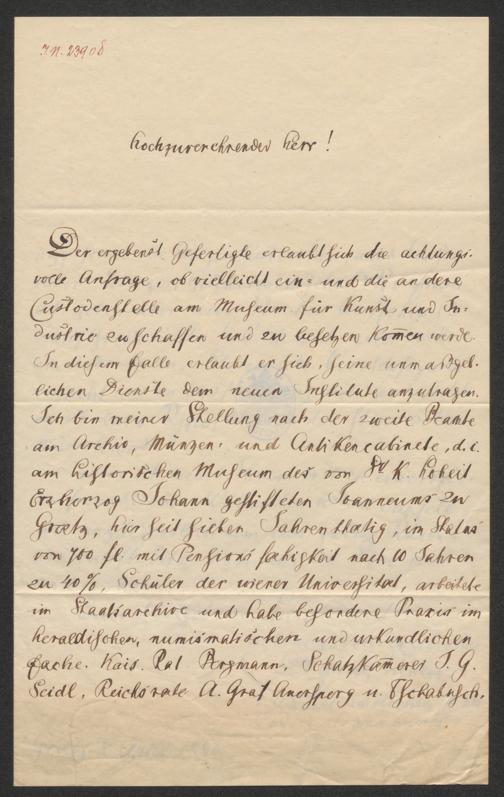 I.N. 23908
Hochzuverehrender Herr!
Der ergebenst Gefertigte erlaubt sich die achtungs-
volle Anfrage, ob vielleicht ein- und die andere
Custodenstelle am Museum für Kunst und In-
dustrie zu schaffen und zu besetzen kom̅en werde.
In diesem Falle erlaubt er sich, seine unmaßgeb-
lichen Dienste dem neuen Institute anzutragen.
Ich bin meiner Stellung nach der zweite Beamte
am Archiv, Münzen- und Antikencabinete, d. i.
am historischen Museum des von Sr K. Hoheit
Erzherzog Johann gestifteten Joanneums zu
Graetz, hier seit sieben Jahren thätig, im Status
von 700 fl mit Pensionsfaehigkeit nach 10 Jahren
zu 40%, Schüler der wiener Universität, arbeitete
im Staatsarchive und habe besondere Praxis im
heraldischen, numismatischen und urkundlichen
Fache. Kais. Rat Bergmann, Schatzkam̅erer J. G.
Seidl, Reichsrate A. Graf Auersperg u. Tschabusch.